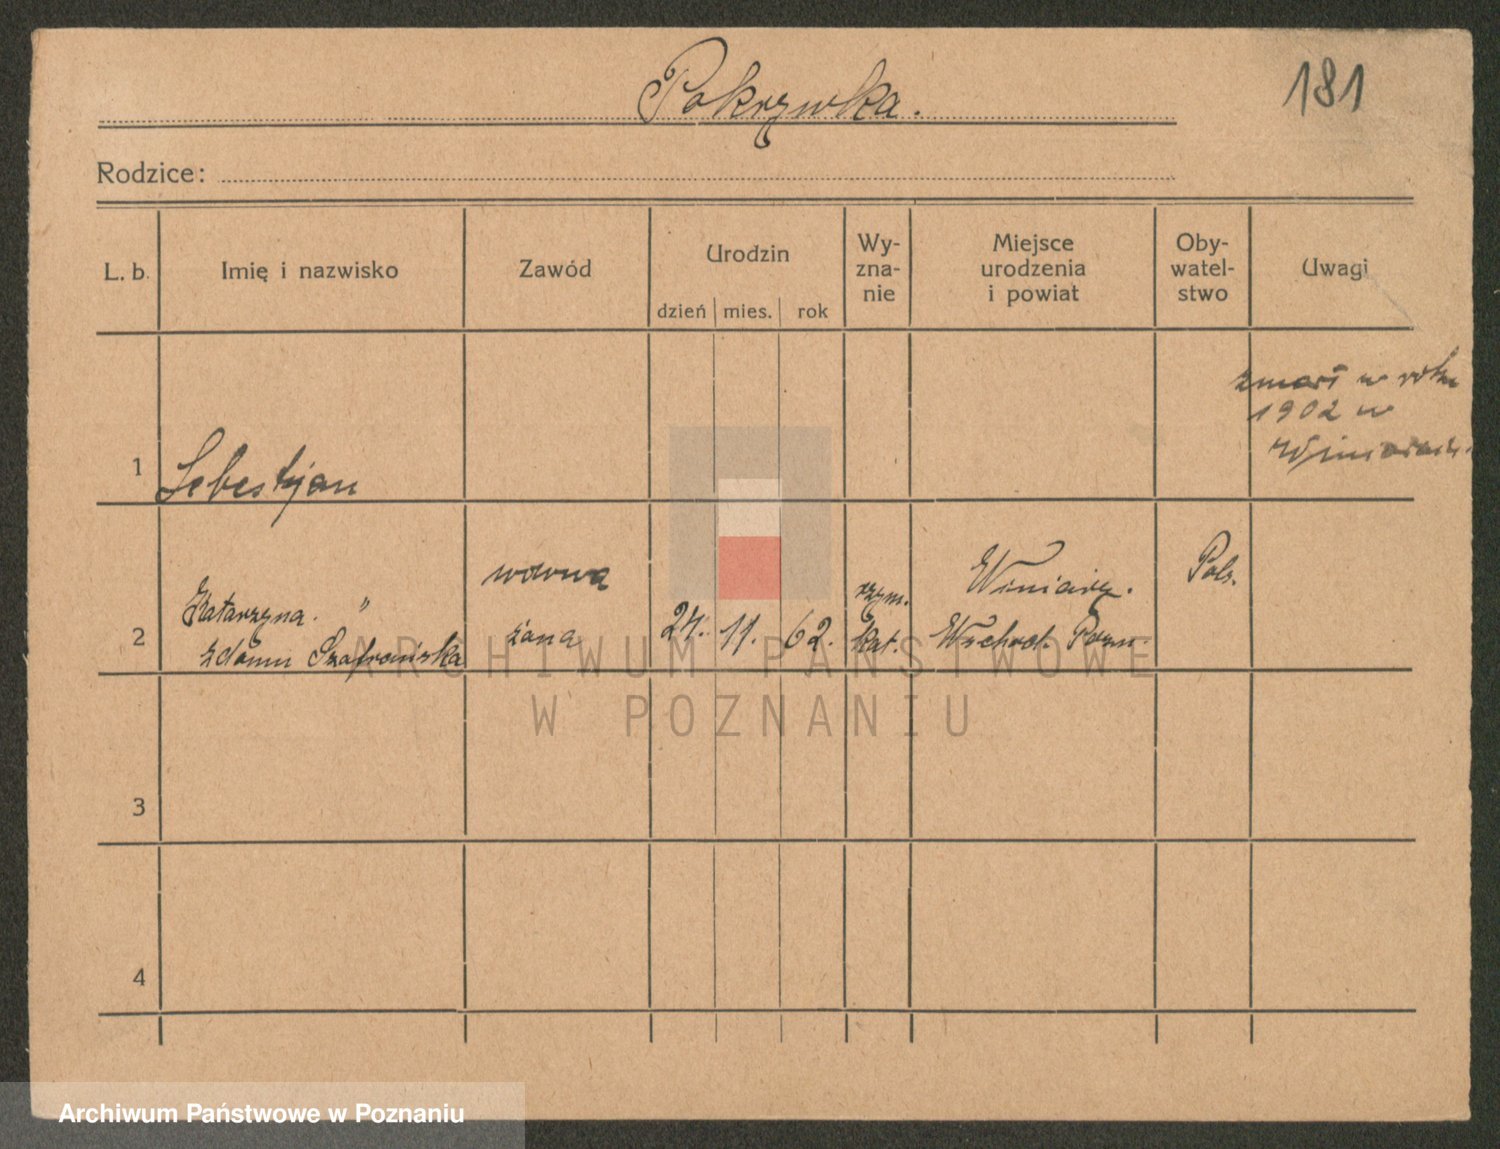 Pokrzywka.
181
Rodzice:
L. b.
Imię i nazwisko
Zawód
Urodzin
dzień mies. rok
Wy-
zna-
nie
Miejsce
urodzenia
i powiat
Oby-
watel-
stwo
Uwagi
1
Sebestjan
zmarł w roku
1902 w
2
Katarzyna. "
z domu Szafrańska
wdowa
żona
24. 11. 62.
rzym.
kat.
Winiary.
Wschod. Pozn
Pols.
3
4
ARCHIWUM PAŃSTWOWE
W POZNANIU
Archiwum Państwowe w Poznaniu